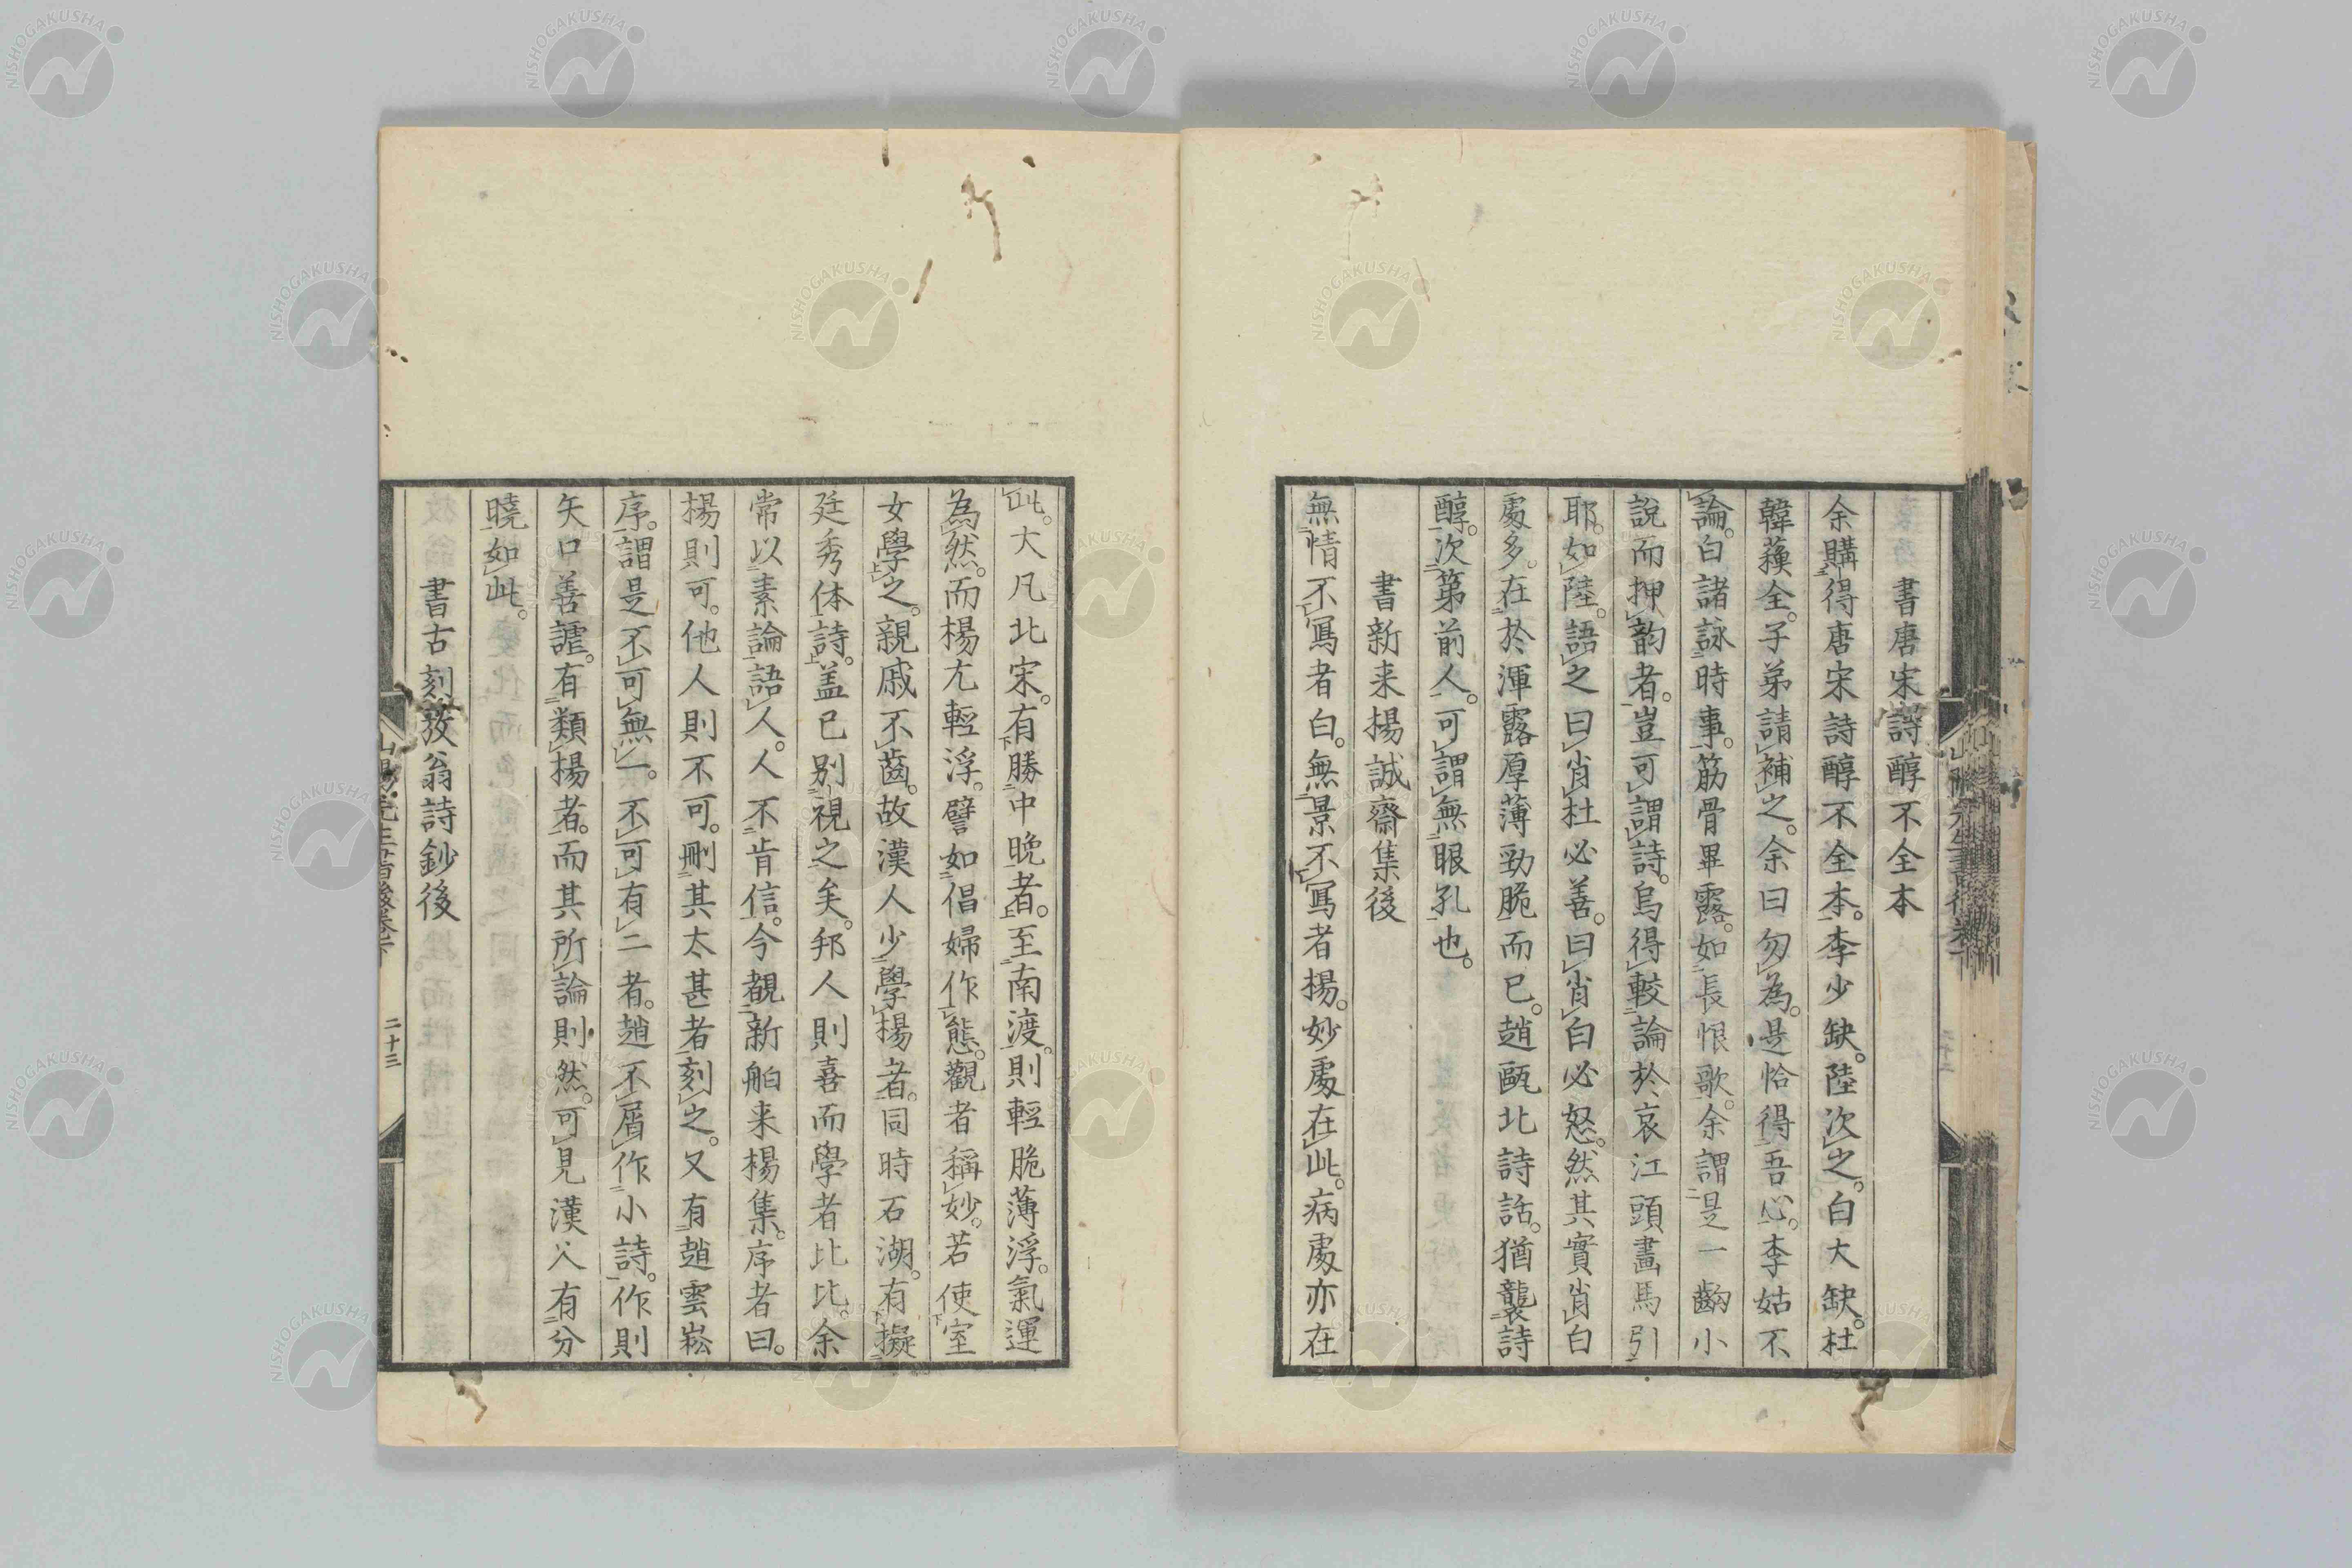 書唐宋詩醇不全本
余購得唐宋詩醇不全本。李少缺。陸次之。白大缺。杜
韓蘓全。子弟請補之。余曰勿為。是恰得吾心。李姑不
論。白諸詠時事。筋骨畢露。如長恨歌。余謂是一齣小
說而押韵者。豈可謂詩。烏得較論於哀江頭畫馬引
耶。如陸。語之曰肖杜必善。曰肖白必怒。然其實肖白
處多。在於渾露厚薄勁脆而已。趙甌北詩話。猶襲詩
醇。次第前人。可謂無眼孔也。
書新来楊誠齋集後
無情不寫者白。無景不寫者楊。妙處在此。病處亦在
此。大凡北宋。有勝中晚者。至南渡。則輕脆薄浮。氣運
為然。而楊尤輕浮。譬如倡婦作態。觀者稱妙。若使室
女學之。親戚不齒。故漢人少學楊者。同時石湖。有擬
廷秀体詩。盖已別視之矣。邦人則喜而學者比比。余
常以素論語人。人不肯信。今覩新舶来楊集。序者曰。
楊則可。他人則不可。刪其太甚者刻之。又有趙雲崧
序。謂是不可無一。不可有二者。趙不屑作小詩。作則
矢口善謔。有類楊者。而其所論則然。可見漢人有分
曉如此。
書古刻放翁詩鈔後
山陽先生書後卷下
二十三